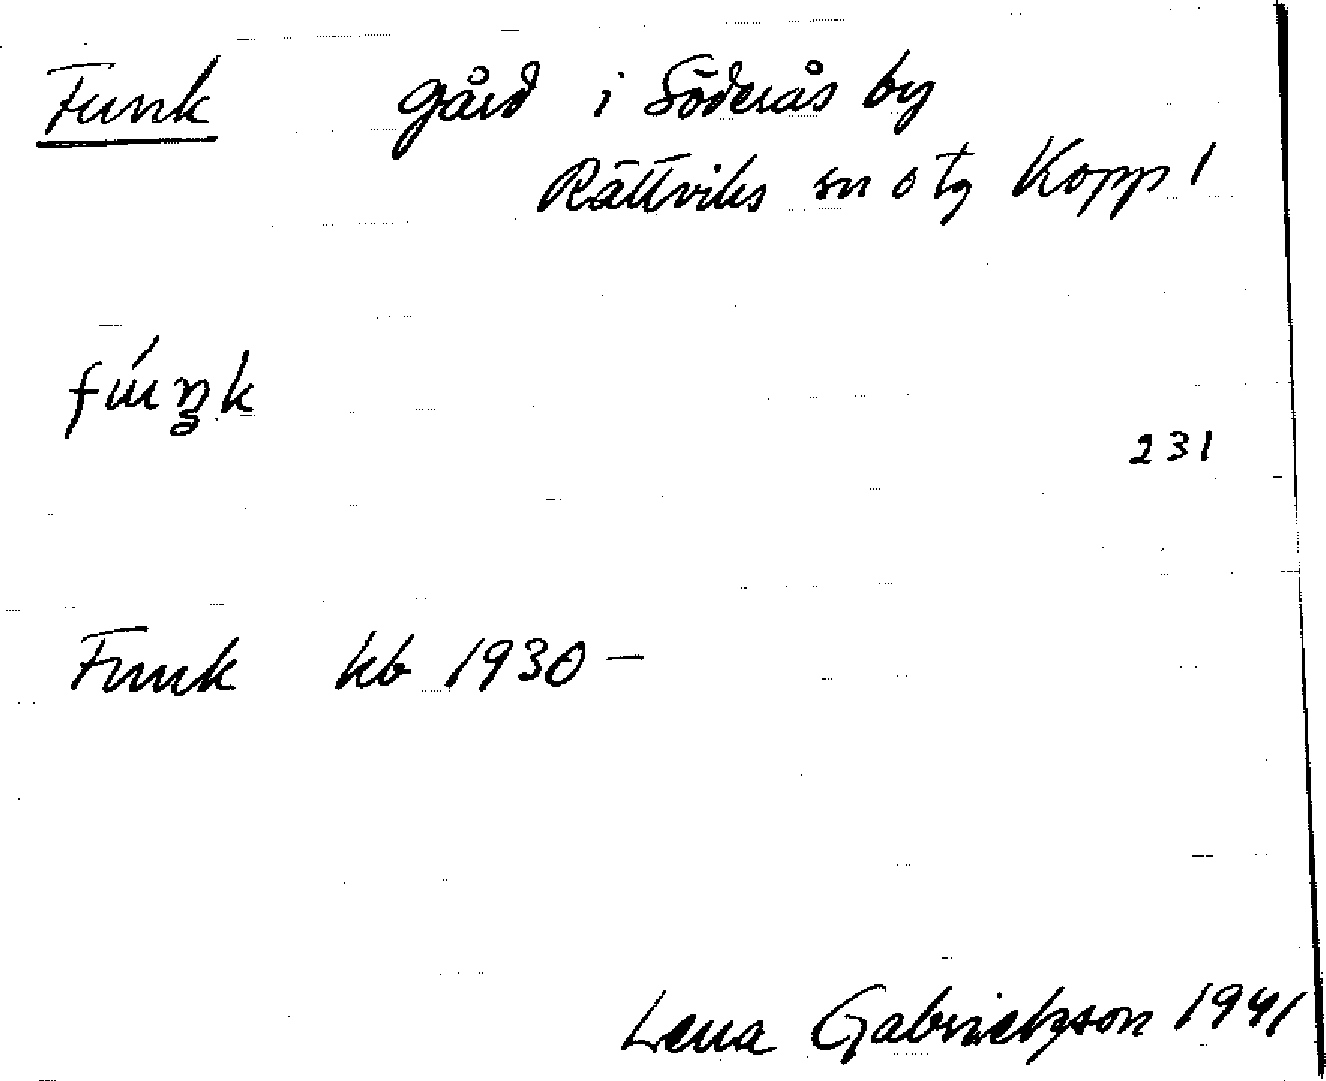 Funk gård i Söderås by
Rättviks sn o tg Kopp l
fúŋk
231
Funk kb 1930 –
Lena Gabrielsson 1941